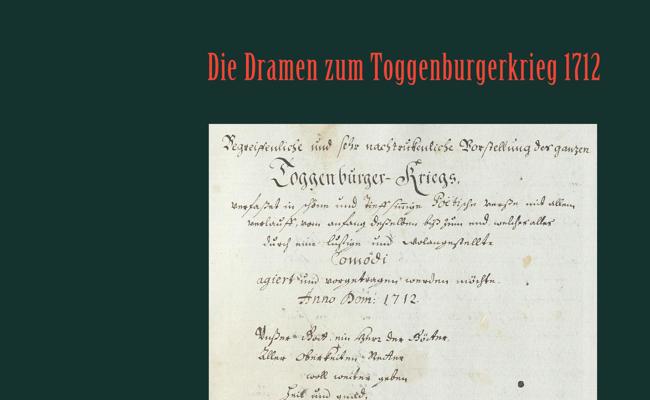 Die Dramen zum Toggenburgerkrieg 1712
Begreifenliche und sehr nachtrukenliche Vorstellung des ganzen
Toggenburger-Kriegs,
verfasset in schöne und tieff sinige Poëtische verse mit allem
verlauff, vom anfang desselben bis zum end, welches alles
durch eine lustige und wolangestellte
Comödi
agiert und vorgetragen werden möchte.
Anno Dom: 1712.
Gott, ein Herr der
Aller Oberkeiten
woll weiter geben
heil und gnad,